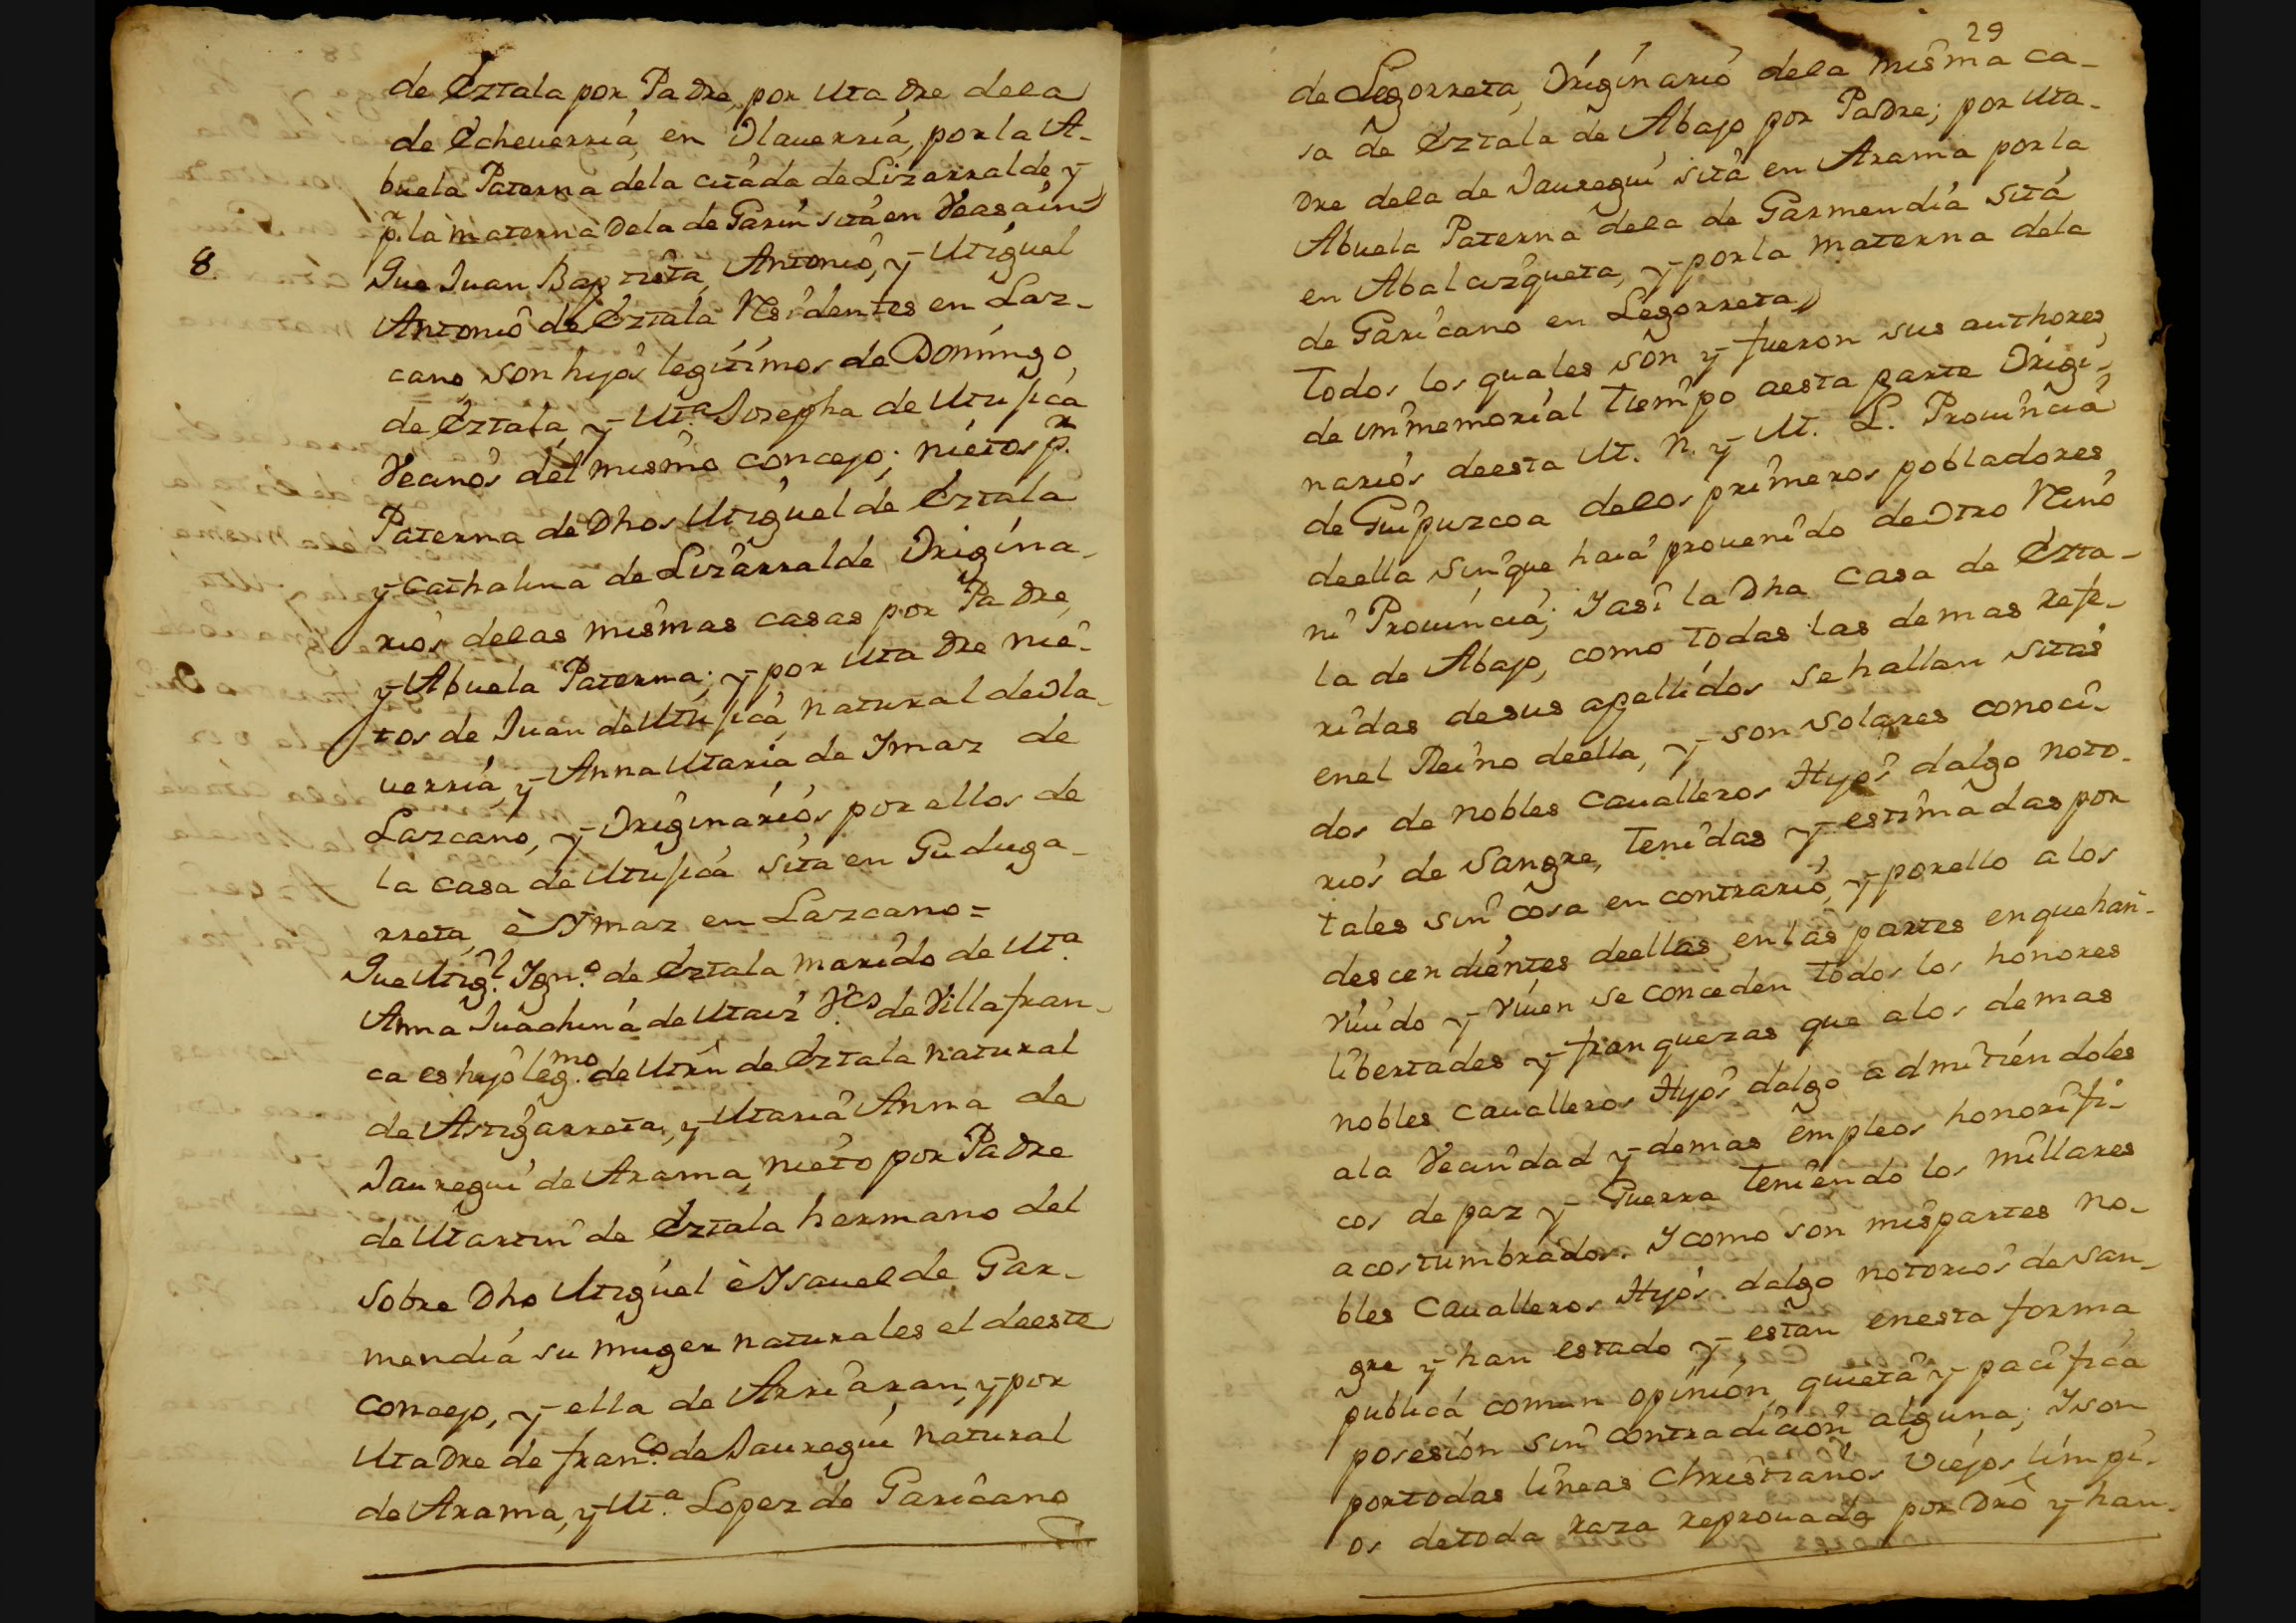 de Eztala por Padre, por Madre dela
de Echeuerria, en Olauerria, por la A-
buela Paterna dela citada de Lizarralde y
pr. la materna dela de Garin sita en Veasain
8. Que Juan Baptista, Antonio, y Miguel
Antonio de Eztala Residentes en Laz-
cano, son hijos legitimos de Domingo
de Eztala, y Ma. Josepha de Mujica
Vecinos del mismo concejo; nietos pr.
Paterna de Dhos Miguel de Eztala
y Cathalina de Lizarralde Origina-
rios delas mismas casas por Padre,
y Abuela Paterna; y por Madre nie-
tos de Juan de Mujica natural de Ola-
uerria, y Anna Maria de Ymaz de
Lazcano, y Originarios por ellos de
la casa de Mujica sita en Guduga-
rreta, è Ymaz en Lazcano =
Que Migl. Igno. de Eztala marido de Ma.
Anna Juachina de Maiz Vcs de Villafran-
ca es hijo legmo. de Mrn de Eztala natural
de Astigarreta, y Maria Anna de
Jauregui de Arama, nieto por Padre
de Martin de Eztala hermano del
sobre Dho Miguel è Ysauel de Gar-
mendia su muger naturales el deeste
concejo, y ella de Arriaran, y por
Madre de Franco. de Jauregui natural
de Arama, y Ma. Lopez de Garicano
29
de Legorreta, Originario dela misma ca-
sa de Eztala de Abajo por Padre; por Ma-
dre dela de Jauregui sita en Arama por la
Abuela Paterna dela de Garmendia sita
en Abalcizqueta, y por la materna dela
de Garicano en Legorreta
Todos los quales son y fueron sus authores
de immemorial tiempo aesta parte Origi-
narios deesta M. N. y M. L. Prouincia
de Guipuzcoa delos primeros pobladores
deella sin que haia prouenido de Otro Reino
ni Prouincia; Y asi la Dha Casa de Ezta-
la de Abajo, como todas las demas refe-
ridas desus apellidos se hallan sitas
enel Reino deella, y son solares conoci-
dos de nobles Caualleros Hijos dalgo noto-
rios de Sangre, tenidas y estimadas por
tales sin cosa en contrario, y porello a los
descendientes deellas, en las partes en que han
viuido y viuen se conceden todos los honores
libertades y franquezas que alos demas
nobles Caualleros Hijos dalgo admitiendoles
ala Vecindad y demas empleos honorifi-
cos de paz y Guerra teniendo los millares
acostumbrados. Y como son mispartes no-
bles Caualleros Hijos dalgo notorios de San-
gre y han estado y estan enesta forma
publica comun opinion, quieta y pacifica
posesion sin contradicion alguna; Y son
portodas lineas Christianos Viejos limpi-
os detoda raza reprouada por Dro y han-